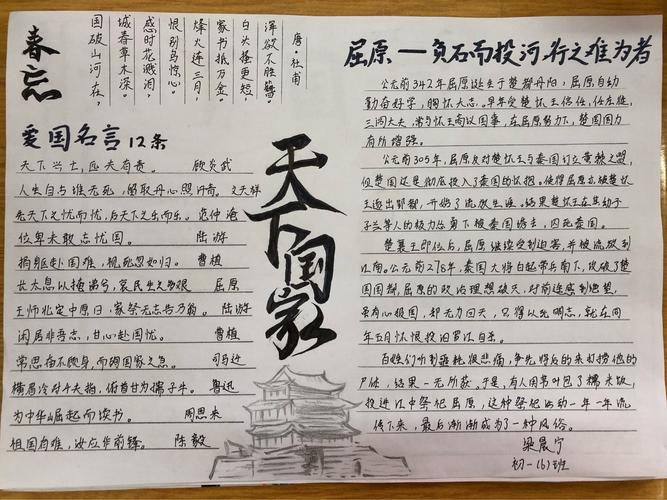 春忘
唐·杜甫
国破山河在，
城春草木深。
感时花溅泪，
恨别鸟惊心。
烽火连三月，
家书抵万金。
白头搔更短，
浑欲不胜簪。
爱国名言12条
天下兴亡，匹夫有责。 顾炎武
人生自古谁无死，留取丹心照汗青。文天祥
先天下之忧而忧，后天下之乐而乐。范仲淹
位卑未敢忘忧国。 陆游
捐躯赴国难，视死忽如归。曹植
长太息以掩涕兮，哀民生之多艰 屈原
王师北定中原日，家祭无忘告乃翁。陆游
闲居非吾志，甘心赴国忧。 曹植
常思奋不顾身，而殉国家之急。 司马迁
横眉冷对千夫指，俯首甘为孺子牛。鲁迅
为中华崛起而读书。 周恩来
祖国有难，汝应作前锋。 陈毅
天下国家
屈原——负石而投河，行之难为者
公元前342年屈原诞生于楚都丹阳，屈原自幼
勤奋好学，胸怀大志。早年受楚怀王信任，任左徒，
三闾大夫，常与怀王商议国事，在屈原努力下，楚国国力
有所增强。
公元前305年，屈原反对楚怀王与秦国订立黄棘之盟，
但楚国还是彻底投入了秦国的怀抱。使得屈原亦被楚怀
王逐出郢都，开始了流放生涯。结果楚怀王在其幼子
子兰等人的极力怂恿下被秦国诱去，囚死秦国。
楚襄王即位后，屈原继续受到迫害，并被流放到
江南。公元前278年，秦国大将白起带兵南下，攻破了楚
国国都，屈原的政治理想破灭，对前途感到绝望，
虽有心报国，却无力回天，只得以死明志，就在同
年五月怀恨投汨罗江自杀。
百姓们听到噩耗很悲痛，争先恐后的来打捞他的
尸体，结果一无所获，于是，有人用苇叶包了糯米饭，
投进江中祭祀屈原，这种祭祀活动一年一年流
传下来，最后渐渐成为了一种风俗。
梁晨宁
初一(6)班